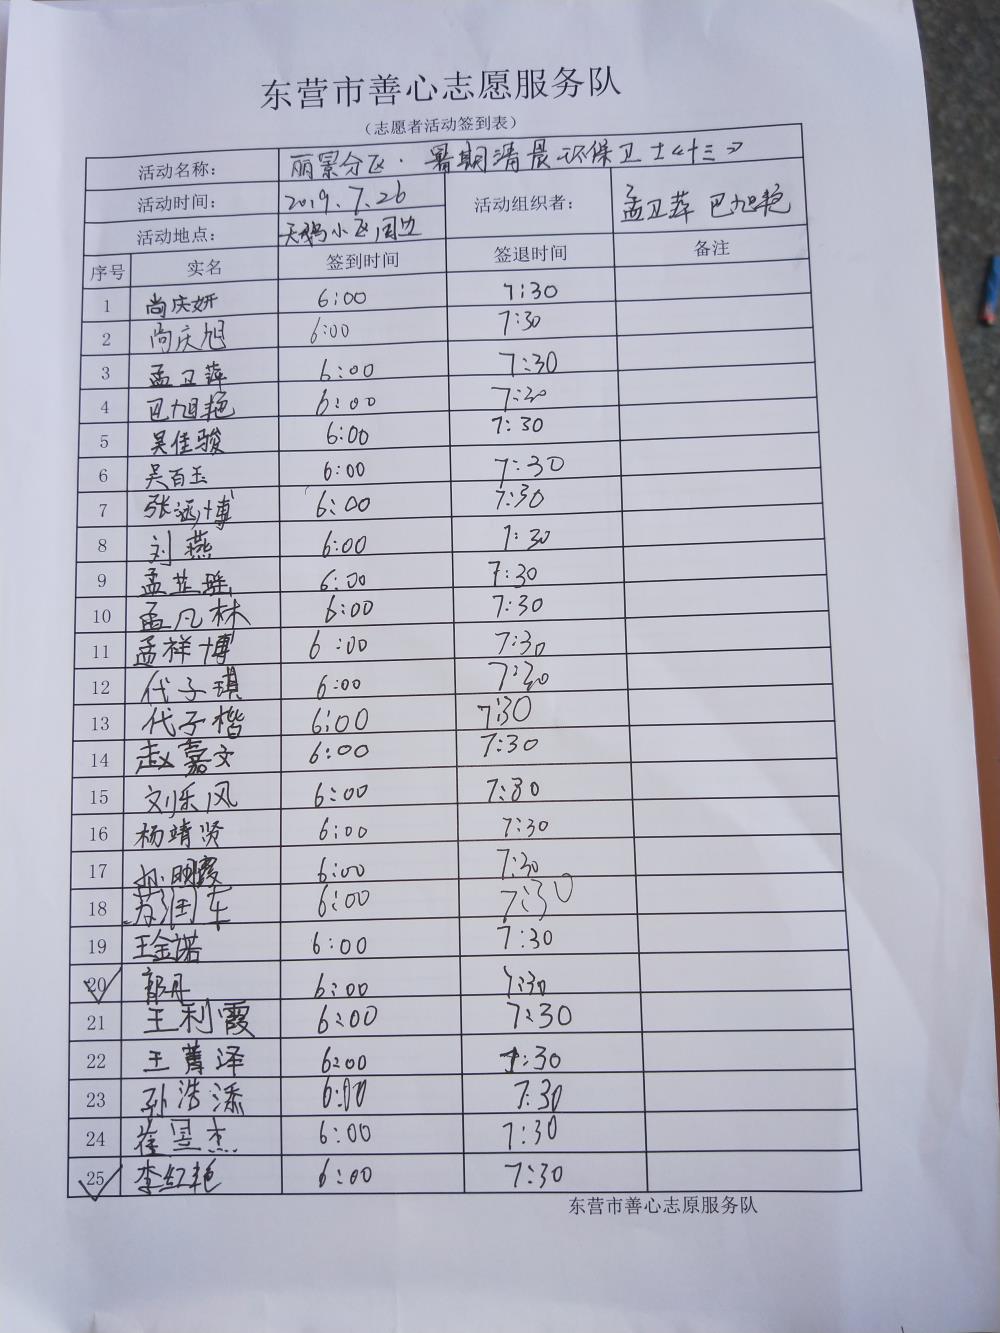 东营市善心志愿服务队
（志愿者活动签到表）
活动名称： 丽景分区·暑期清晨环保卫士《十三》
活动时间： 2019.7.26 活动组织者： 孟卫萍 巴旭艳
活动地点： 天鹅小区周边
序号 实名 签到时间 签退时间 备注
1 尚庆妍 6:00 7:30
2 尚庆旭 6:00 7:30
3 孟卫萍 6:00 7:30
4 巴旭艳 6:00 7:30
5 吴佳骏 6:00 7:30
6 吴百玉 6:00 7:30
7 张远博 6:00 7:30
8 刘燕 6:00 7:30
9 孟芷瑶 6:00 7:30
10 孟凡林 6:00 7:30
11 孟祥博 6:00 7:30
12 代子琪 6:00 7:30
13 代子楷 6:00 7:30
14 赵嘉文 6:00 7:30
15 刘乐风 6:00 7:30
16 杨靖贤 6:00 7:30
17 孙明霞 6:00 7:30
18 苏国军 6:00 7:30
19 王金诺 6:00 7:30
20 郭丹 6:00 7:30
21 王利霞 6:00 7:30
22 王菁泽 6:00 7:30
23 孙浩添 6:00 7:30
24 崔昱杰 6:00 7:30
25 李红艳 6:00 7:30
东营市善心志原服务队